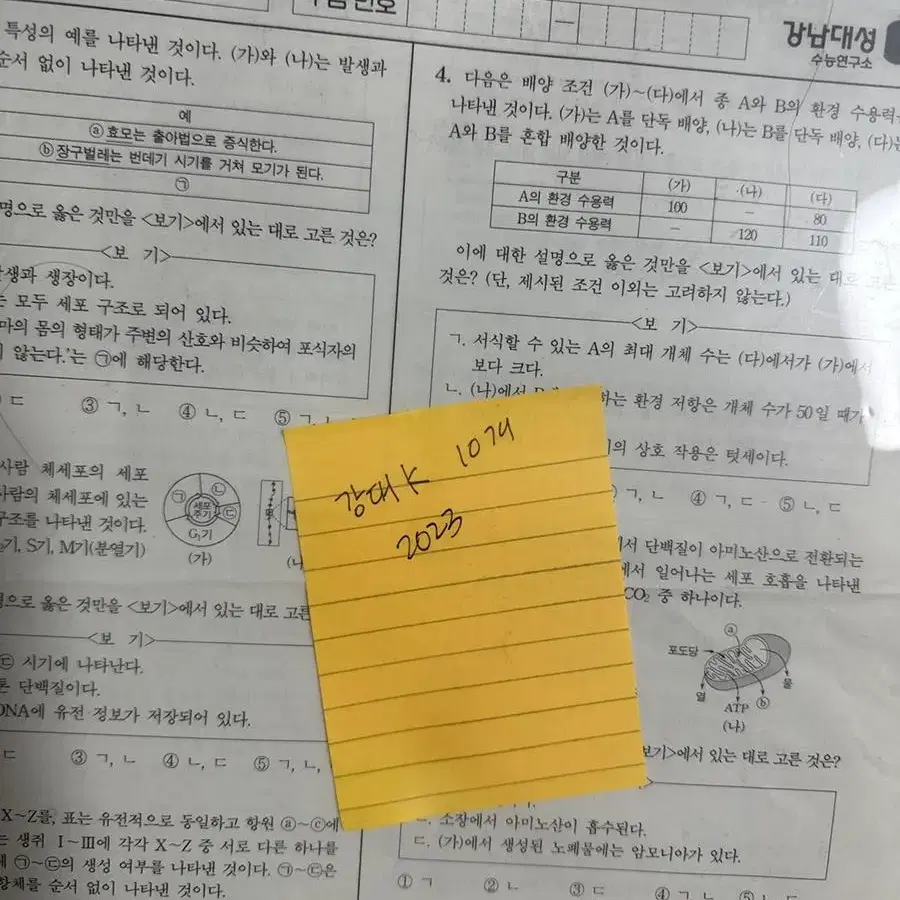 수험번호
강남대성
수능연구소
특성의 예를 나타낸 것이다. (가)와 (나)는 발생과
순서 없이 나타낸 것이다.
예
ⓐ 효모는 출아법으로 증식한다.
ⓑ 장구벌레는 번데기 시기를 거쳐 모기가 된다.
㉠
명으로 옳은 것만을 <보기>에서 있는 대로 고른 것은?
<보 기>
발생과 생장이다.
는 모두 세포 구조로 되어 있다.
마의 몸의 형태가 주변의 산호와 비슷하여 포식자의
지 않는다.'는 ㉠에 해당한다.
ㄷ ③ ㄱ, ㄴ ④ ㄴ, ㄷ ⑤ ㄱ, ㄴ
사람 체세포의 세포
사람의 체세포에 있는
구조를 나타낸 것이다.
기, S기, M기(분열기)
㉠ ㉡ ㉢
세포
주기
G₁기
(가)
(나
명으로 옳은 것만을 <보기>에서 있는 대로 고른
<보 기>
㉢ 시기에 나타난다.
톤 단백질이다.
DNA에 유전 정보가 저장되어 있다.
ㄷ ③ ㄱ, ㄴ ④ ㄴ, ㄷ ⑤ ㄱ, ㄴ,
X~Z를, 표는 유전적으로 동일하고 항원 ⓐ~ⓒ에
는 생쥐 Ⅰ~Ⅲ에 각각 X~Z 중 서로 다른 하나를
㉠~㉢의 생성 여부를 나타낸 것이다. ㉠~㉢은
항체를 순서 없이 나타낸 것이다.
4. 다음은 배양 조건 (가)~(다)에서 종 A와 B의 환경 수용력을
나타낸 것이다. (가)는 A를 단독 배양, (나)는 B를 단독 배양, (다)는
A와 B를 혼합 배양한 것이다.
구분 (가) (나) (다)
A의 환경 수용력 100 - 80
B의 환경 수용력 - 120 110
이에 대한 설명으로 옳은 것만을 <보기>에서 있는 대로 고른
것은? (단, 제시된 조건 이외는 고려하지 않는다.)
<보 기>
ㄱ. 서식할 수 있는 A의 최대 개체 수는 (다)에서가 (가)에서
보다 크다.
ㄴ. (나)에서 하는 환경 저항은 개체 수가 50일 때가
의 상호 작용은 텃세이다.
ㄱ, ㄴ ④ ㄱ, ㄷ ⑤ ㄴ, ㄷ
강대 K 10개
2023
서 단백질이 아미노산으로 전환되는
에서 일어나는 세포 호흡을 나타낸
CO₂ 중 하나이다.
ⓐ
포도당
열
ATP
ⓑ
물
(나)
보기>에서 있는 대로 고른 것은?
ㄴ. 소장에서 아미노산이 흡수된다.
ㄷ. (가)에서 생성된 노폐물에는 암모니아가 있다.
① ㄱ ② ㄴ ③ ㄷ ④ ㄱ, ㄴ ⑤ ㄴ, ㄷ